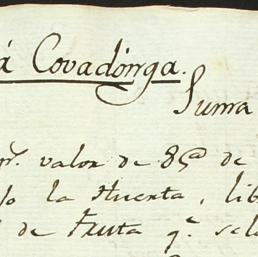 á Covadonga.
Suma
pr. valor de 85@ de
la Huerta, lib
de Fruta q.e